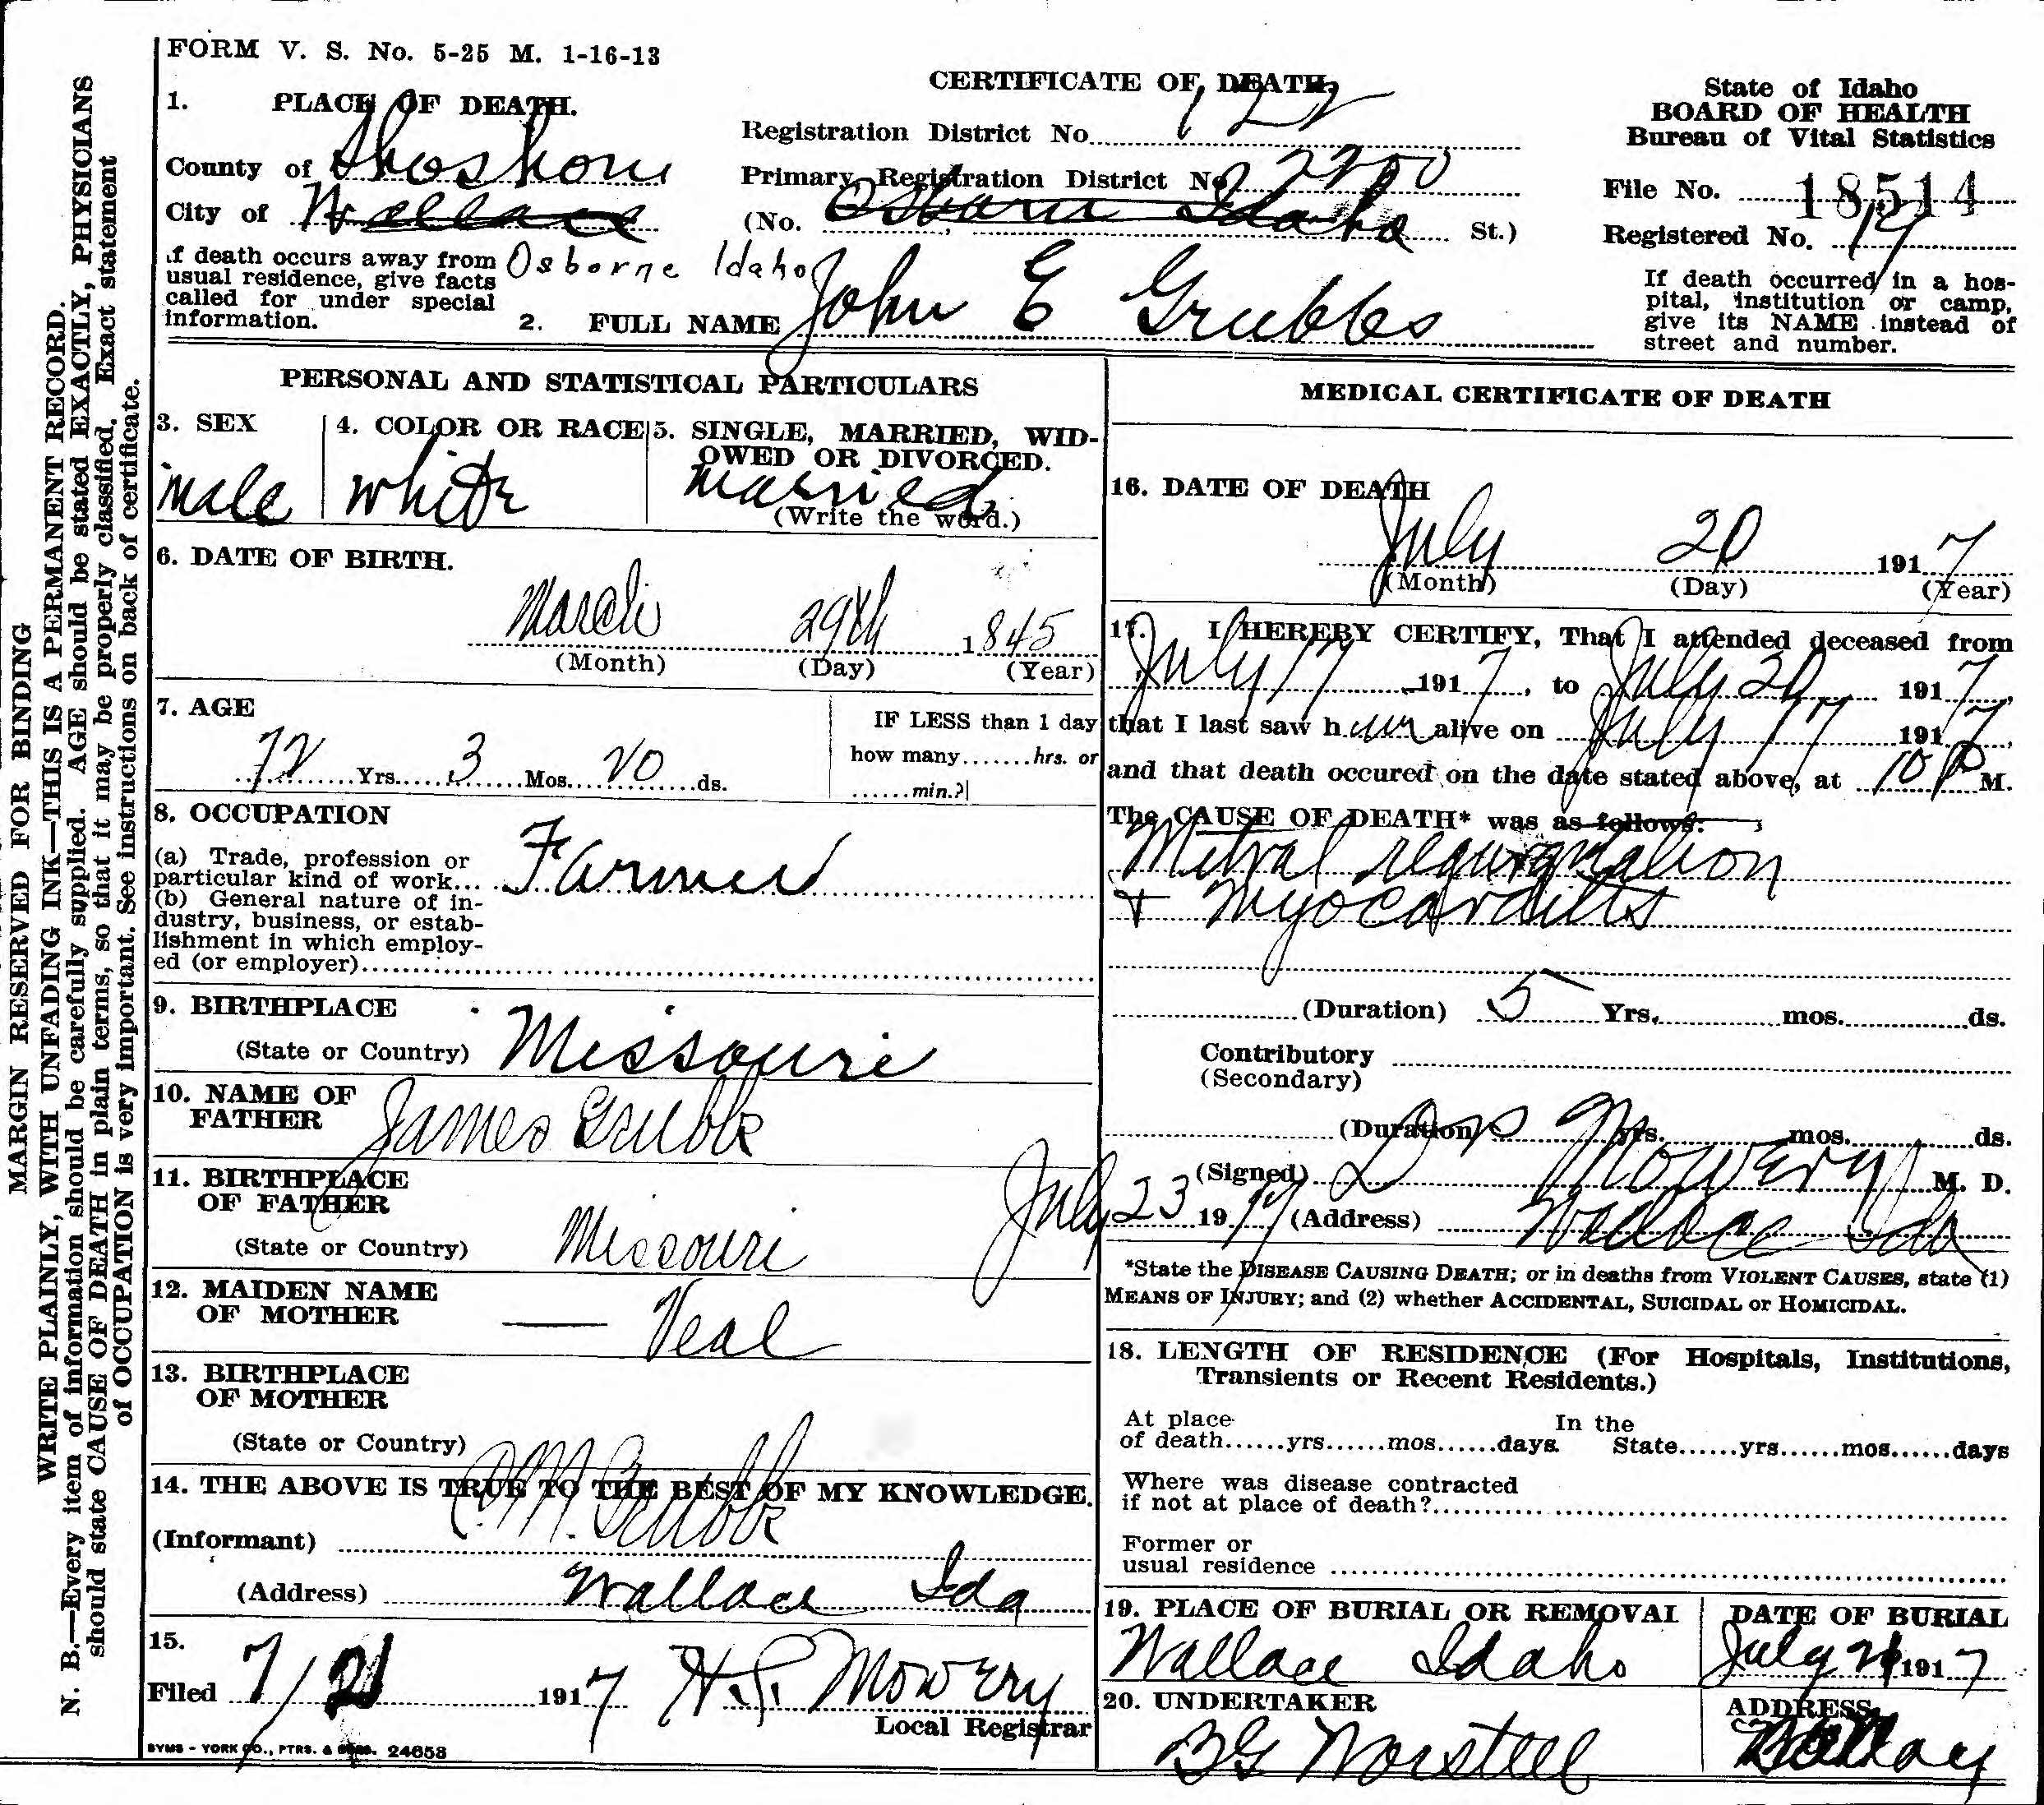 MARGIN RESERVED FOR BINDING
WRITE PLAINLY, WITH UNFADING INK—THIS IS A PERMANENT RECORD.
N. B.—Every item of information should be carefully supplied. AGE should be stated EXACTLY, PHYSICIANS
should state CAUSE OF DEATH in plain terms, so that it may be properly classified. Exact statement
of OCCUPATION is very important. See instructions on back of certificate.
FORM V. S. No. 5-25 M. 1-16-13
CERTIFICATE OF DEATH
State of Idaho
BOARD OF HEALTH
Bureau of Vital Statistics
1. PLACE OF DEATH.
County of Shoshone
City of Wallace
Registration District No. 122
Primary Registration District No. 2200
(No. Osborn Idaho St.)
File No. 18514
Registered No. 17
If death occurs away from
usual residence, give facts
called for under special
information.
Osborne Idaho
2. FULL NAME John E Grubbs
If death occurred in a hos-
pital, institution or camp,
give its NAME instead of
street and number.
PERSONAL AND STATISTICAL PARTICULARS
3. SEX
male
4. COLOR OR RACE
white
5. SINGLE, MARRIED, WID-
OWED OR DIVORCED.
married
(Write the word.)
6. DATE OF BIRTH.
March 29th 1845
(Month) (Day) (Year)
7. AGE
72 Yrs. 3 Mos. 20 ds.
IF LESS than 1 day
how many.......hrs. or
......min.?
8. OCCUPATION
(a) Trade, profession or
particular kind of work... Farmer
(b) General nature of in-
dustry, business, or estab-
lishment in which employ-
ed (or employer)
9. BIRTHPLACE
(State or Country) Missouri
10. NAME OF
FATHER James Grubbs
11. BIRTHPLACE
OF FATHER
(State or Country) Missouri
12. MAIDEN NAME
OF MOTHER — Veal
13. BIRTHPLACE
OF MOTHER
(State or Country)
14. THE ABOVE IS TRUE TO THE BEST OF MY KNOWLEDGE.
(Informant) C.M. Grubbs
(Address) Wallace Ida
15.
Filed 7/21 1917 H.P. Mowery
Local Registrar
SYMS - YORK CO., PTRS. & BDRS. 24658
MEDICAL CERTIFICATE OF DEATH
16. DATE OF DEATH
July 20 1917
(Month) (Day) (Year)
17. I HEREBY CERTIFY, That I attended deceased from
July 17 1917, to July 20 1917,
that I last saw him alive on July 17 1917,
and that death occured on the date stated above, at 10 P M.
The CAUSE OF DEATH* was as follows:
Mitral regurgitation
+ Myocarditis
(Duration) 5 Yrs. mos. ds.
Contributory
(Secondary)
(Duration) yrs. mos. ds.
(Signed) Mowery M. D.
July 23 1917 (Address) Wallace Ida
*State the DISEASE CAUSING DEATH; or in deaths from VIOLENT CAUSES, state (1)
MEANS OF INJURY; and (2) whether ACCIDENTAL, SUICIDAL or HOMICIDAL.
18. LENGTH OF RESIDENCE (For Hospitals, Institutions,
Transients or Recent Residents.)
At place In the
of death......yrs......mos......days. State......yrs......mos......days
Where was disease contracted
if not at place of death?
Former or
usual residence
19. PLACE OF BURIAL OR REMOVAL
Wallace Idaho
DATE OF BURIAL
July 21 1917
20. UNDERTAKER
BG Worstell
ADDRESS